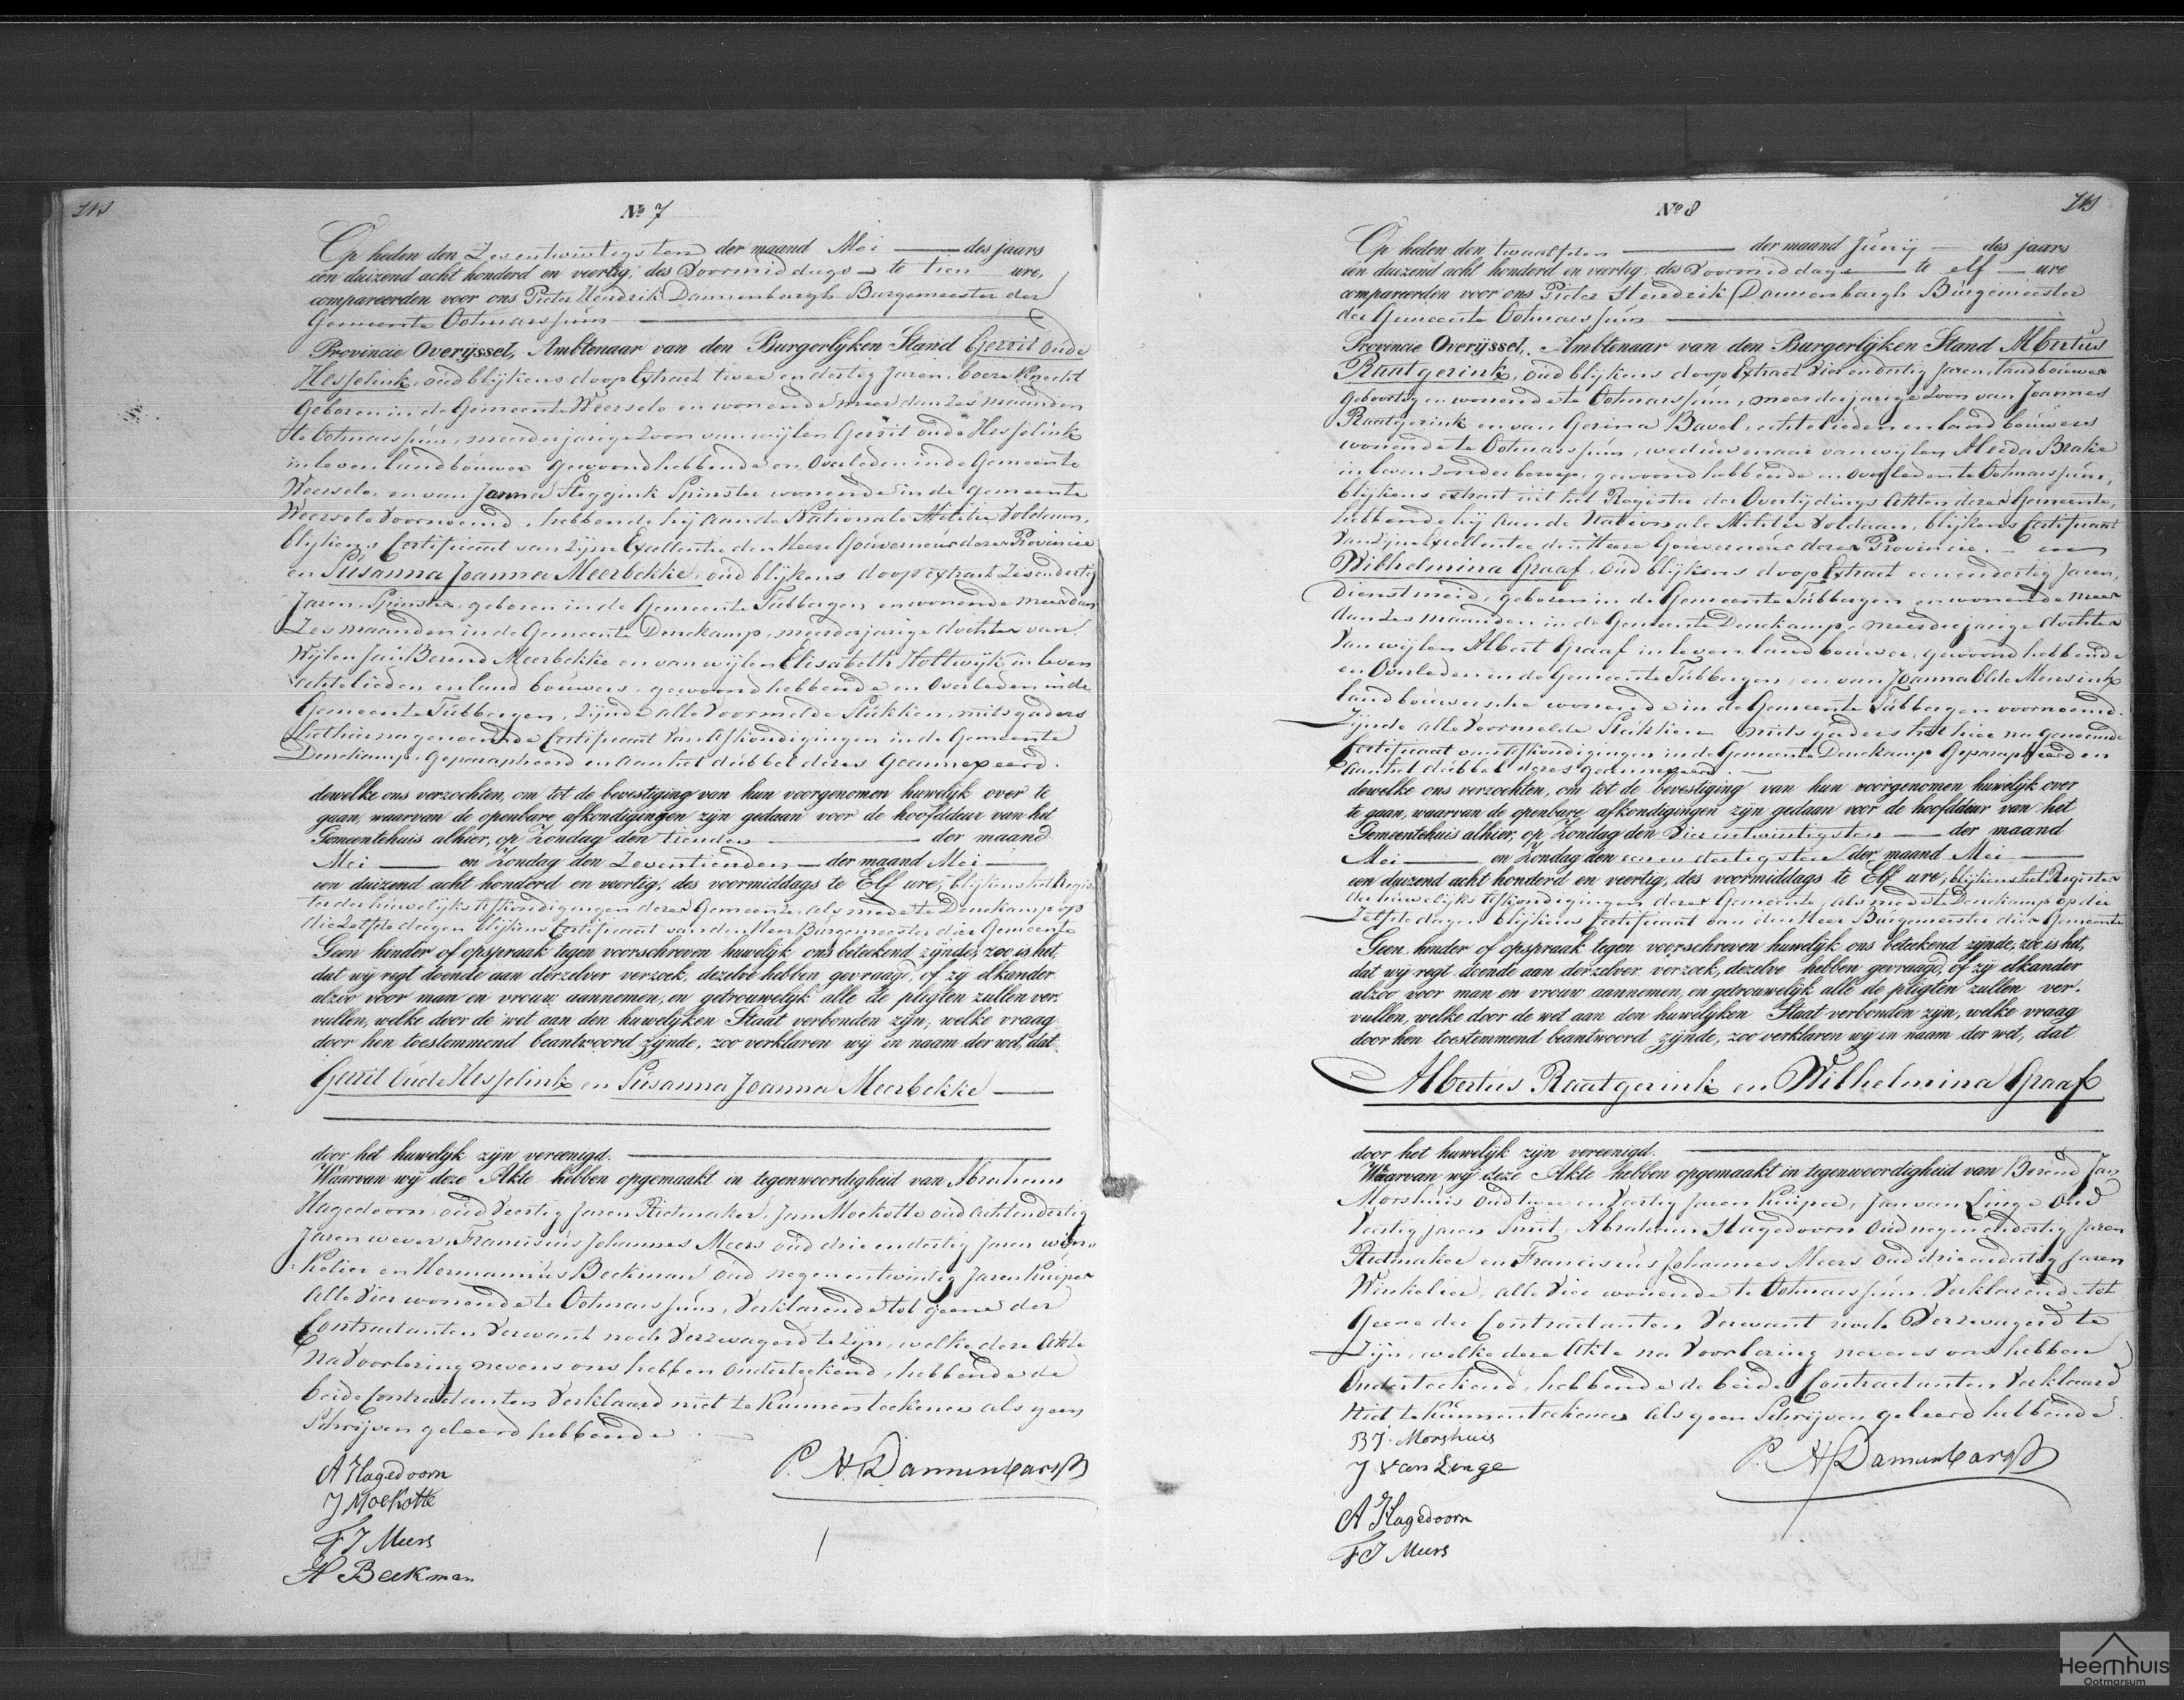 Nº 7
Op heden den Zesentwintigsten der maand Mei des jaars
een duizend acht honderd en veertig, des Voormiddags te tien ure,
compareerden voor ons Pieter Hendrik Dannenbargh Burgemeester der
Gemeente Ootmarssum
Provincie Overijssel, Ambtenaar van den Burgerlijken Stand Gerrit Oude
Hesselink, oud blijkens doop Extract twee en dertig Jaren, boere Knecht
Geboren in de Gemeente Weerselo en wonende meer dan Zes maanden
te Ootmarssum, meerderjarige Zoon van wijlen Gerrit oude Hesselink
in leven landbouwer gewoond hebbende en Overleden in de Gemeente
Weerselo, en van Janna Steggink Spinster wonende in de Gemeente
Weerselo Voornoemd, hebbende hij aan de Nationale Militie Voldaan,
blijkens Certificaat van Zijne Excellentie den Heere Gouverneur dezer Provincie
en Susanna Joanna Meerbekke, oud blijkens doop extract Zesendertig
Jaren, Spinster, geboren in de Gemeente Tubbergen en wonende meer dan
Zes maanden in de Gemeente Denekamp, meerderjarige dochter van
Wijlen Jan Berend Meerbekke en van wijlen Elisabeth Holtwijk in leven
echtelieden en land bouwers, gewoond hebbende en Overleden in de
Gemeente Tubbergen, Zijnde alle Voormelde Stukken, mitsgaders
het hierna genoemde Certificaat Van Afkondigingen in de Gemeente
Denekamp, Geparapheerd en aan het dubbel dezes Geannexeerd.
dewelke ons verzochten, om tot de bevestiging van hun voorgenomen huwelijk over te
gaan, waarvan de openbare afkondigingen zijn gedaan voor de hoofddeur van het
Gemeentehuis alhier, op Zondag den tienden der maand
Mei en Zondag den Zeventienden der maand Mei
een duizend acht honderd en veertig, des voormiddags te Elf ure, blijkens het Regis
ter der huwelijks Afkondigingen dezer Gemeente, als mede te Denekamp op
die Zelfde dagen blijkens Certificaat van den Heer Burgemeester dier Gemeente
Geen hinder of opspraak tegen voorschreven huwelijk ons beteekend zijnde, zoo is het,
dat wij regt doende aan derzelver verzoek, dezelve hebben gevraagd, of zij elkander
alzoo voor man en vrouw aannemen, en getrouwelijk alle de pligten zullen ver-
vullen, welke door de wet aan den huwelijken Staat verbonden zijn, welke vraag
door hen toestemmend beantwoord zijnde, zoo verklaren wij in naam der wet, dat
Gerrit Oude Hesselink en Susanna Joanna Meerbekke
door het huwelijk zijn vereenigd.
Waarvan wij deze Akte hebben opgemaakt in tegenwoordigheid van Abraham
Hagedoorn oud Veertig Jaren Rietmaker, Jan Moekotte oud achtendertig
Jaren wever, Franciscus Johannes Meers oud drie en dertig Jaren win-
kelier en Hermannus Beekman oud negenentwintig Jaren Kuiper
Alle Vier wonende te Ootmarssum, Verklarende tot geene der
Contractanten Verwant noch Verzwagerd te zijn, welke deze Akte
Na Voorlezing nevens ons hebben Onderteekend, hebbende de
beide Contractanten Verklaard niet te Kunnen teekenen als geen
Schrijven geleerd hebbende.
A Hagedoorn
J Moekotte
F J Meers
H Beekman
P. H. Dannenbargh
Nº 8
Op heden den twaalfden der maand Junij des jaars
een duizend acht honderd en veertig, des Voormiddags te elf ure
compareerden voor ons Pieter Hendrik Dannenbargh Burgemeester
der Gemeente Ootmarssum
Provincie Overijssel, Ambtenaar van den Burgerlijken Stand Albertus
Raatgerink, oud blijkens doop Extract Vier en dertig Jaren, landbouwer
Geboortig en wonende te Ootmarssum, meerderjarige Zoon van Joannes
Raatgerink en van Gerina Bavel, echtelieden en land bouwers
wonende te Ootmarssum, weduwenaar van wijlen Aleida Brake
in leven zonder beroep, gewoond hebbende en overleden te Ootmarssum,
blijkens extract uit het Register der Overlijdings Akten dezer Gemeente,
hebbende hij aan de Nationale Militie Voldaan, blijkens Certificaat
Van Zijne Excellentie den Heere Gouverneur dezer Provincie. en
Wilhelmina Graaf, Oud blijkens doop Extract eenendertig Jaren,
Dienstmeid, geboren in de Gemeente Tubbergen en wonende meer
dan zes maanden in de Gemeente Denekamp, meerderjarige dochter
Van wijlen Albert Graaf in leven land bouwer, gewoond hebbende
en Overleden in de Gemeente Tubbergen, en van Joanna Olde Mensink
landbouwersche wonende in de Gemeente Tubbergen voornoemd.
Zijnde alle Voormelde Stukken mitsgaders het hier na Genoemde
Certificaat van Afkondigingen in de Gemeente Denekamp Geparapheerd en
aan het dubbel dezes geannexeerd.
dewelke ons verzochten, om tot de bevestiging van hun voorgenomen huwelijk over
te gaan, waarvan de openbare afkondigingen zijn gedaan voor de hoofddeur van het
Gemeentehuis alhier, op Zondag den Vierentwintigsten der maand
Mei en Zondag den eenen dertigsten der maand Mei
een duizend acht honderd en veertig, des voormiddags te Elf ure, blijkens het Register
der huwelijks Afkondigingen dezer Gemeente, als mede te Denekamp op die
Zelfde dagen blijkens Certificaat van den Heer Burgemeester dier Gemeente
Geen hinder of opspraak tegen voorschreven huwelijk ons beteekend zijnde, zoo is het,
dat wij regt doende aan derzelver verzoek, dezelve hebben gevraagd, of zij elkander
alzoo voor man en vrouw aannemen, en getrouwelijk alle de pligten zullen ver-
vullen, welke door de wet aan den huwelijken Staat verbonden zijn, welke vraag
door hen toestemmend beantwoord zijnde, zoo verklaren wij in naam der wet, dat
Albertus Raatgerink en Wilhelmina Graaf
door het huwelijk zijn vereenigd.
Waarvan wij deze Akte hebben opgemaakt in tegenwoordigheid van Berend Jan
Morshuis oud twee en Veertig Jaren Kuiper, Jan van Linge Oud
Veertig jaren Smit, Abraham Hagedoorn Oud negenendertig Jaren
Rietmaker en Franciscus Johannes Meers Oud drie en dertig Jaren
Winkelier, alle Vier wonende te Ootmarssum Verklarende tot
Geene der Contractanten Verwant noch Verzwagerd te
Zijn, welke deze Akte na Voorlezing nevens ons hebben
Onderteekend, hebbende de beide Contractanten Verklaard
Niet te Kunnen teekenen als geen Schrijven geleerd hebbende.
BJ. Morshuis
J Van Linge
A Hagedoorn
F J Meers
P. H Dannenbargh
Heemhuis
Ootmarsum